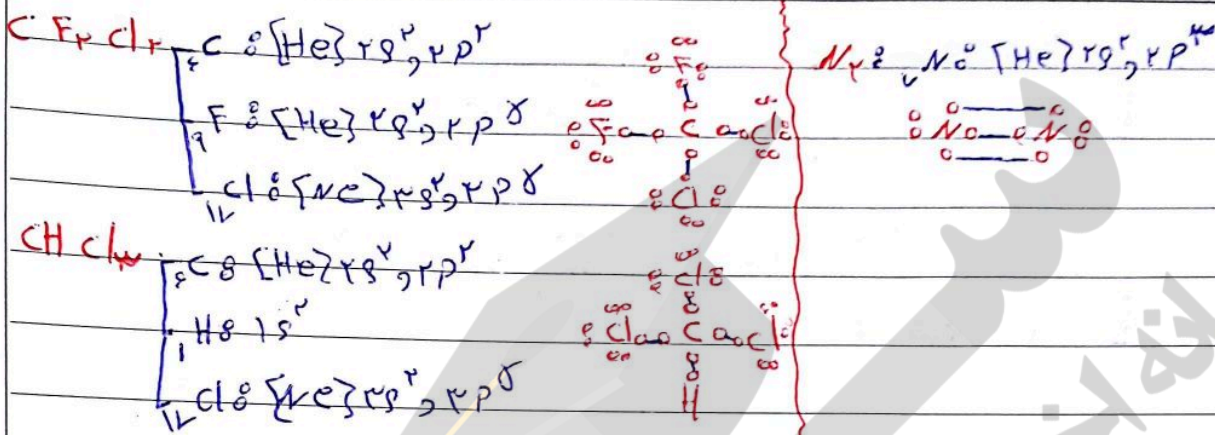 CF۲Cl۲
۶C : [He] ۲s۲, ۲p۲
۹F : [He] ۲s۲, ۲p۵
۱۷Cl : [Ne] ۳s۲, ۳p۵
F
F C Cl
Cl
N۲ : ۷N : [He] ۲s۲, ۲p۳
N N
CHCl۳
۶C : [He] ۲s۲, ۲p۲
۱H : ۱s۲
۱۷Cl : [Ne] ۳s۲, ۳p۵
Cl
Cl C Cl
H